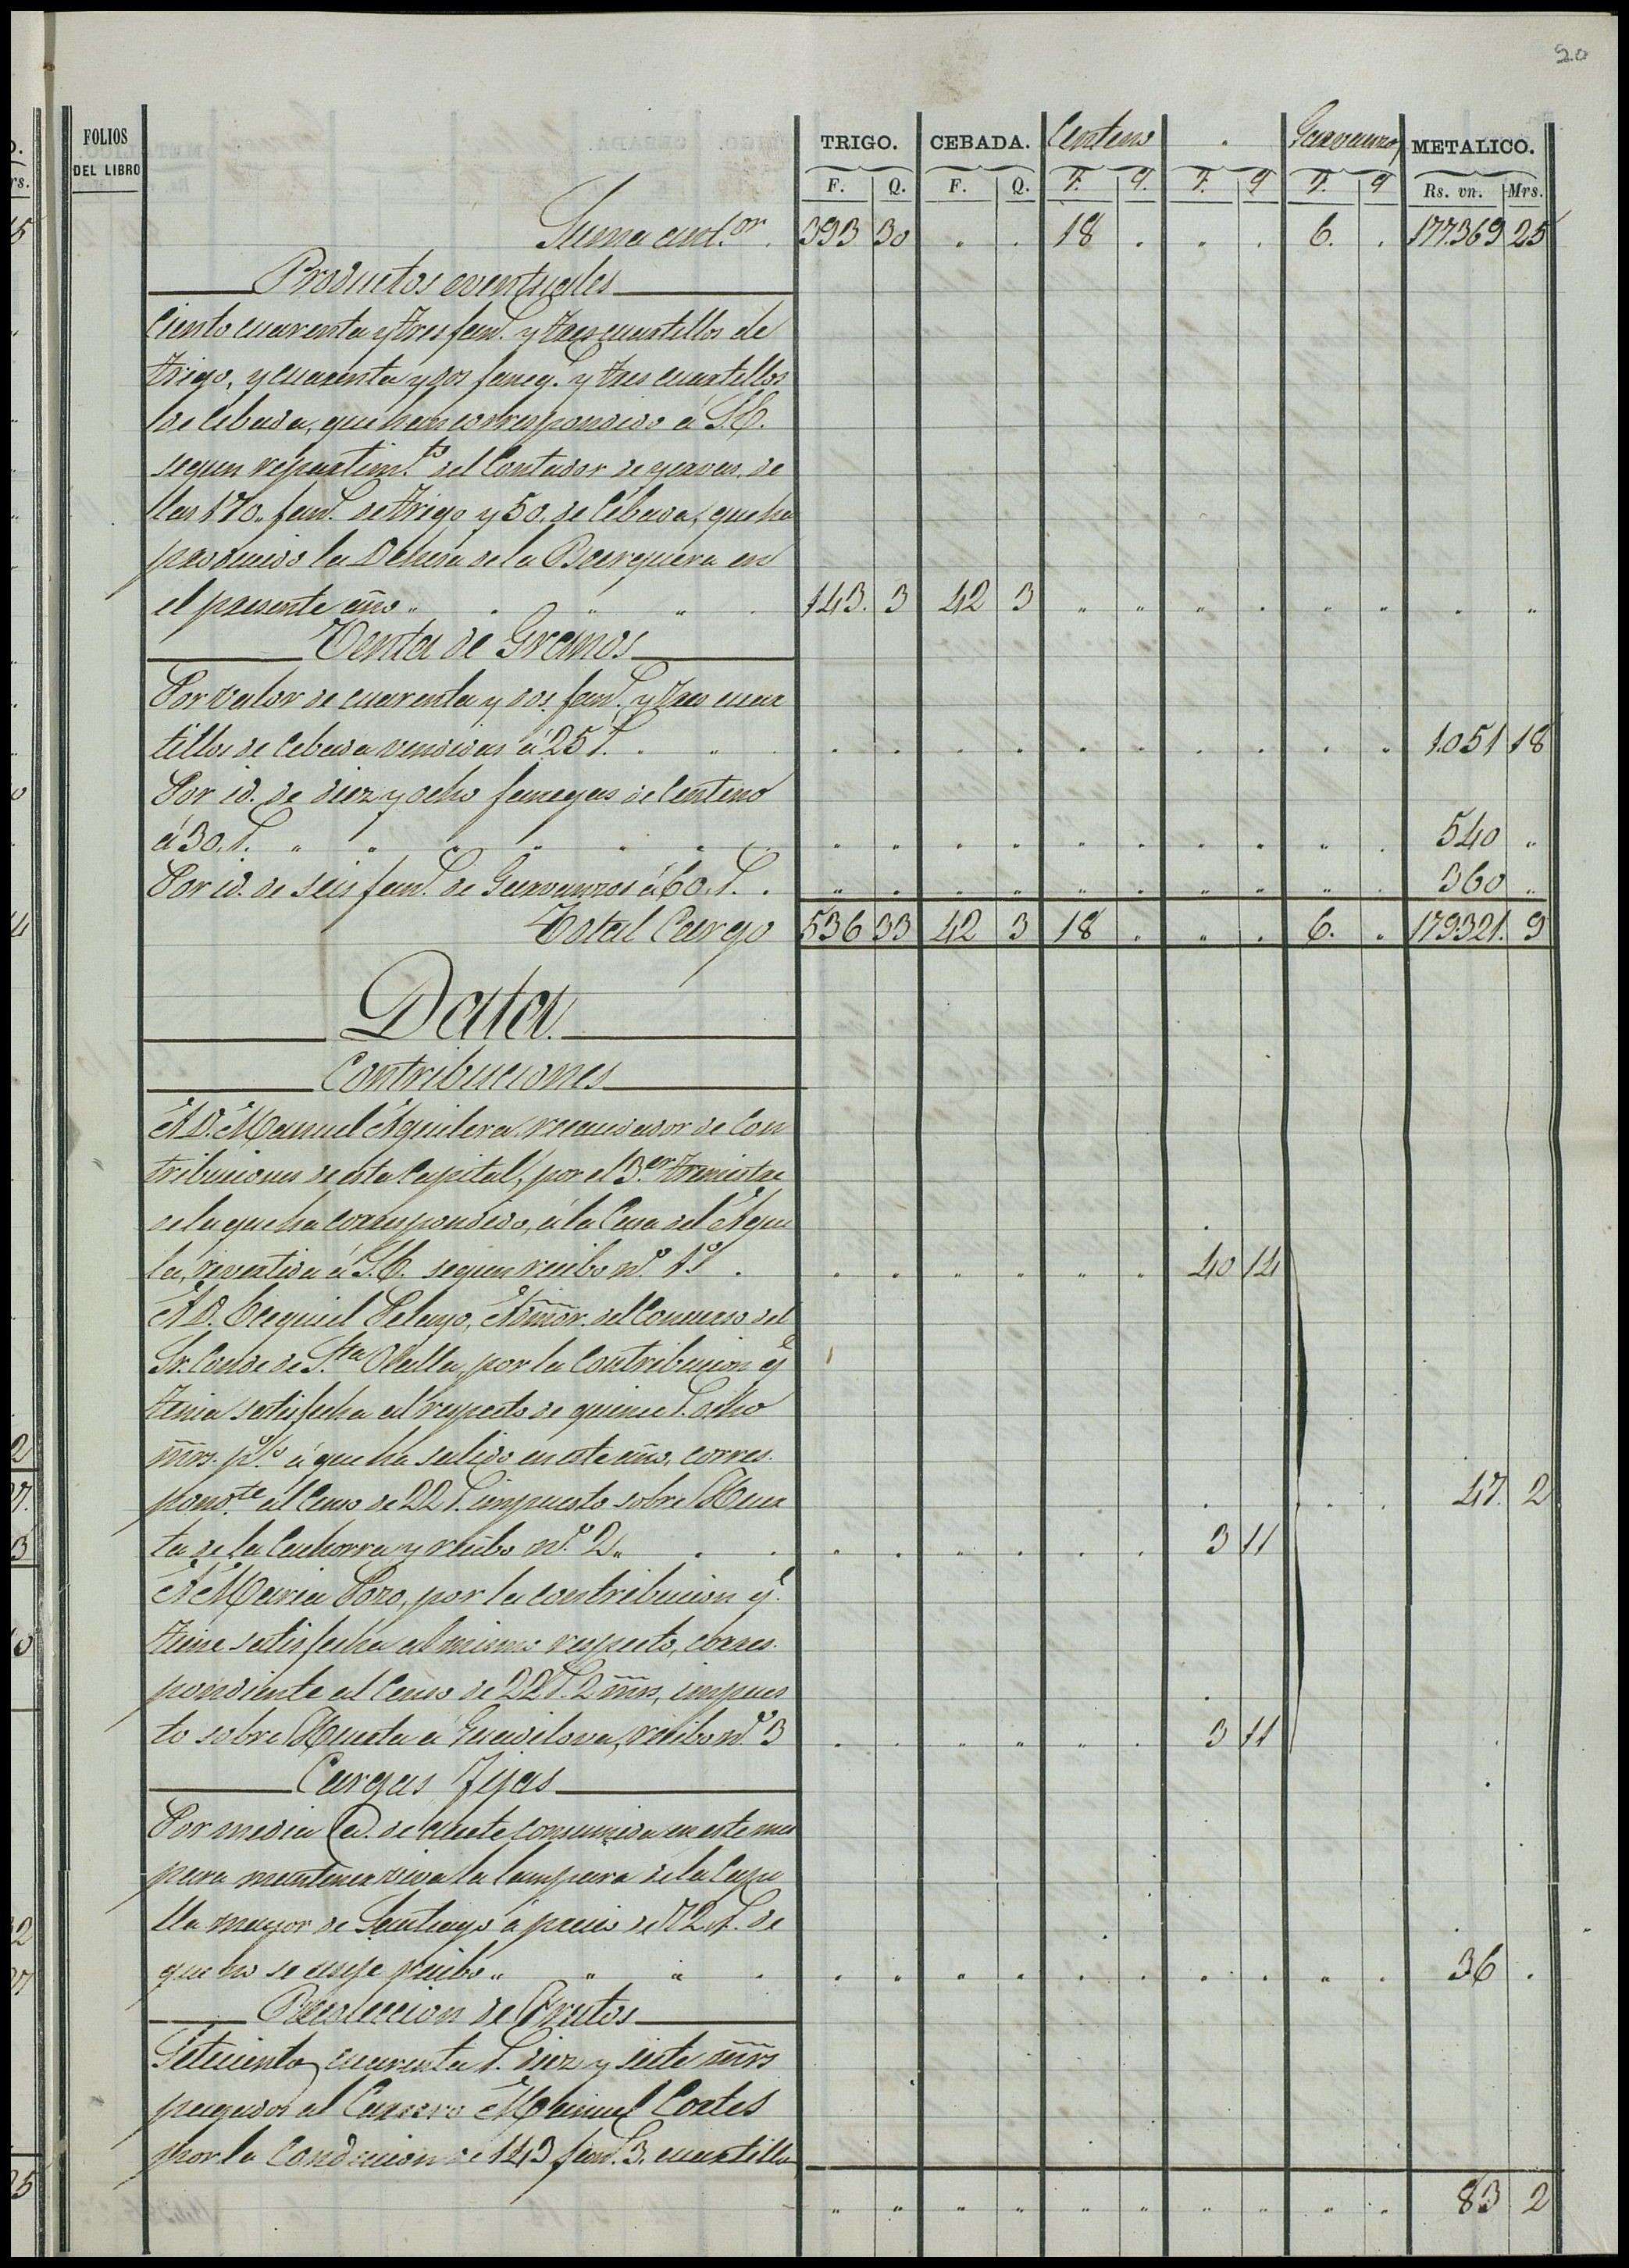 20
FOLIOS DEL LIBRO TRIGO. CEBADA. Centeno . Garvanzos METALICO.
F. Q. F. Q. F. q. F. q F. q Rs. vn. Mrs.
Suma ant.or 393 30 . . 18 . . . 6. . 177.369 25
Productos eventuales
Ciento cuarenta y tres fan.s y tres cuartillos de
trigo, y cuarenta y dos faneg.s y tres cuartillos
de Cebada, que han correspondido á S.E.
segun repartim.to del Contador de de
las 170,, fan.s de trigo y 50. de Cebada, que ha
producido la Dehesa de la en
el presente año,, 143. 3 42 3 " " " . " " . "
Venta de Granos
Por valor de cuarenta y dos fan.s y tres cuar
tillos de Cebada vendidas á 25 r.s . . . . . . . . . . . . 1.051 18
Por id. de diez y ocho fanegas de Centeno
á 30. r.s " " " " " " " . . . " . 540 "
Por id. de seis fan.s de Garvanzos á 60. r.s . " . . " " . " " " . 360 "
Total Cargo 536 33 42 3 18 . . . 6. . 179321. 9
Data.
Contribuciones
A D. Manuel Aguilera recaudador de Con
tribuciones de esta Capital, por el 3.er trimestre
de la que ha correspondido, á la Casa del Agui
la, revertida á S.E. segun recibo n.o 1.o . . . . . . . 40 14
A D. Ezequiel Pelayo, Admor. del Concurso del
Sr. Conde de S.ta Olalla, por la Contribucion q.e
tenia satisfecha al respecto de quince r.s ocho
mrs. p.o/o á que ha salido en este año, corres.
pond.te al Censo de 22 r.s impuesto sobre Huer . . . 47. 2
ta de la Cachorra y recibo n.o 2,, . . . . . . . . 3 11
A Maria Pozo, por la contribucion q.e
tiene satisfecha al mismo respecto, corres.
pondiente al Censo de 22 r.s 2 mrs, impues
to sobre Huerta á recibo n.o 3 . . . . . . 3 11
Cargas Fijas
Por media @. de aceite consumida en este mes
para mantener viva la lampara de la Capi
lla mayor de Santiago á precio de 72 r.s de
que no se exije recibo,, " " . . . . . . . . . . . 36 .
Recoleccion de Frutos
Setecientos cuarenta r.s diez y siete mrs
pagados al Carrero Manuel Cortes
por la Conduccion de 143 fan.s 3. cuartillos
" " " " " " " " " . 83 2